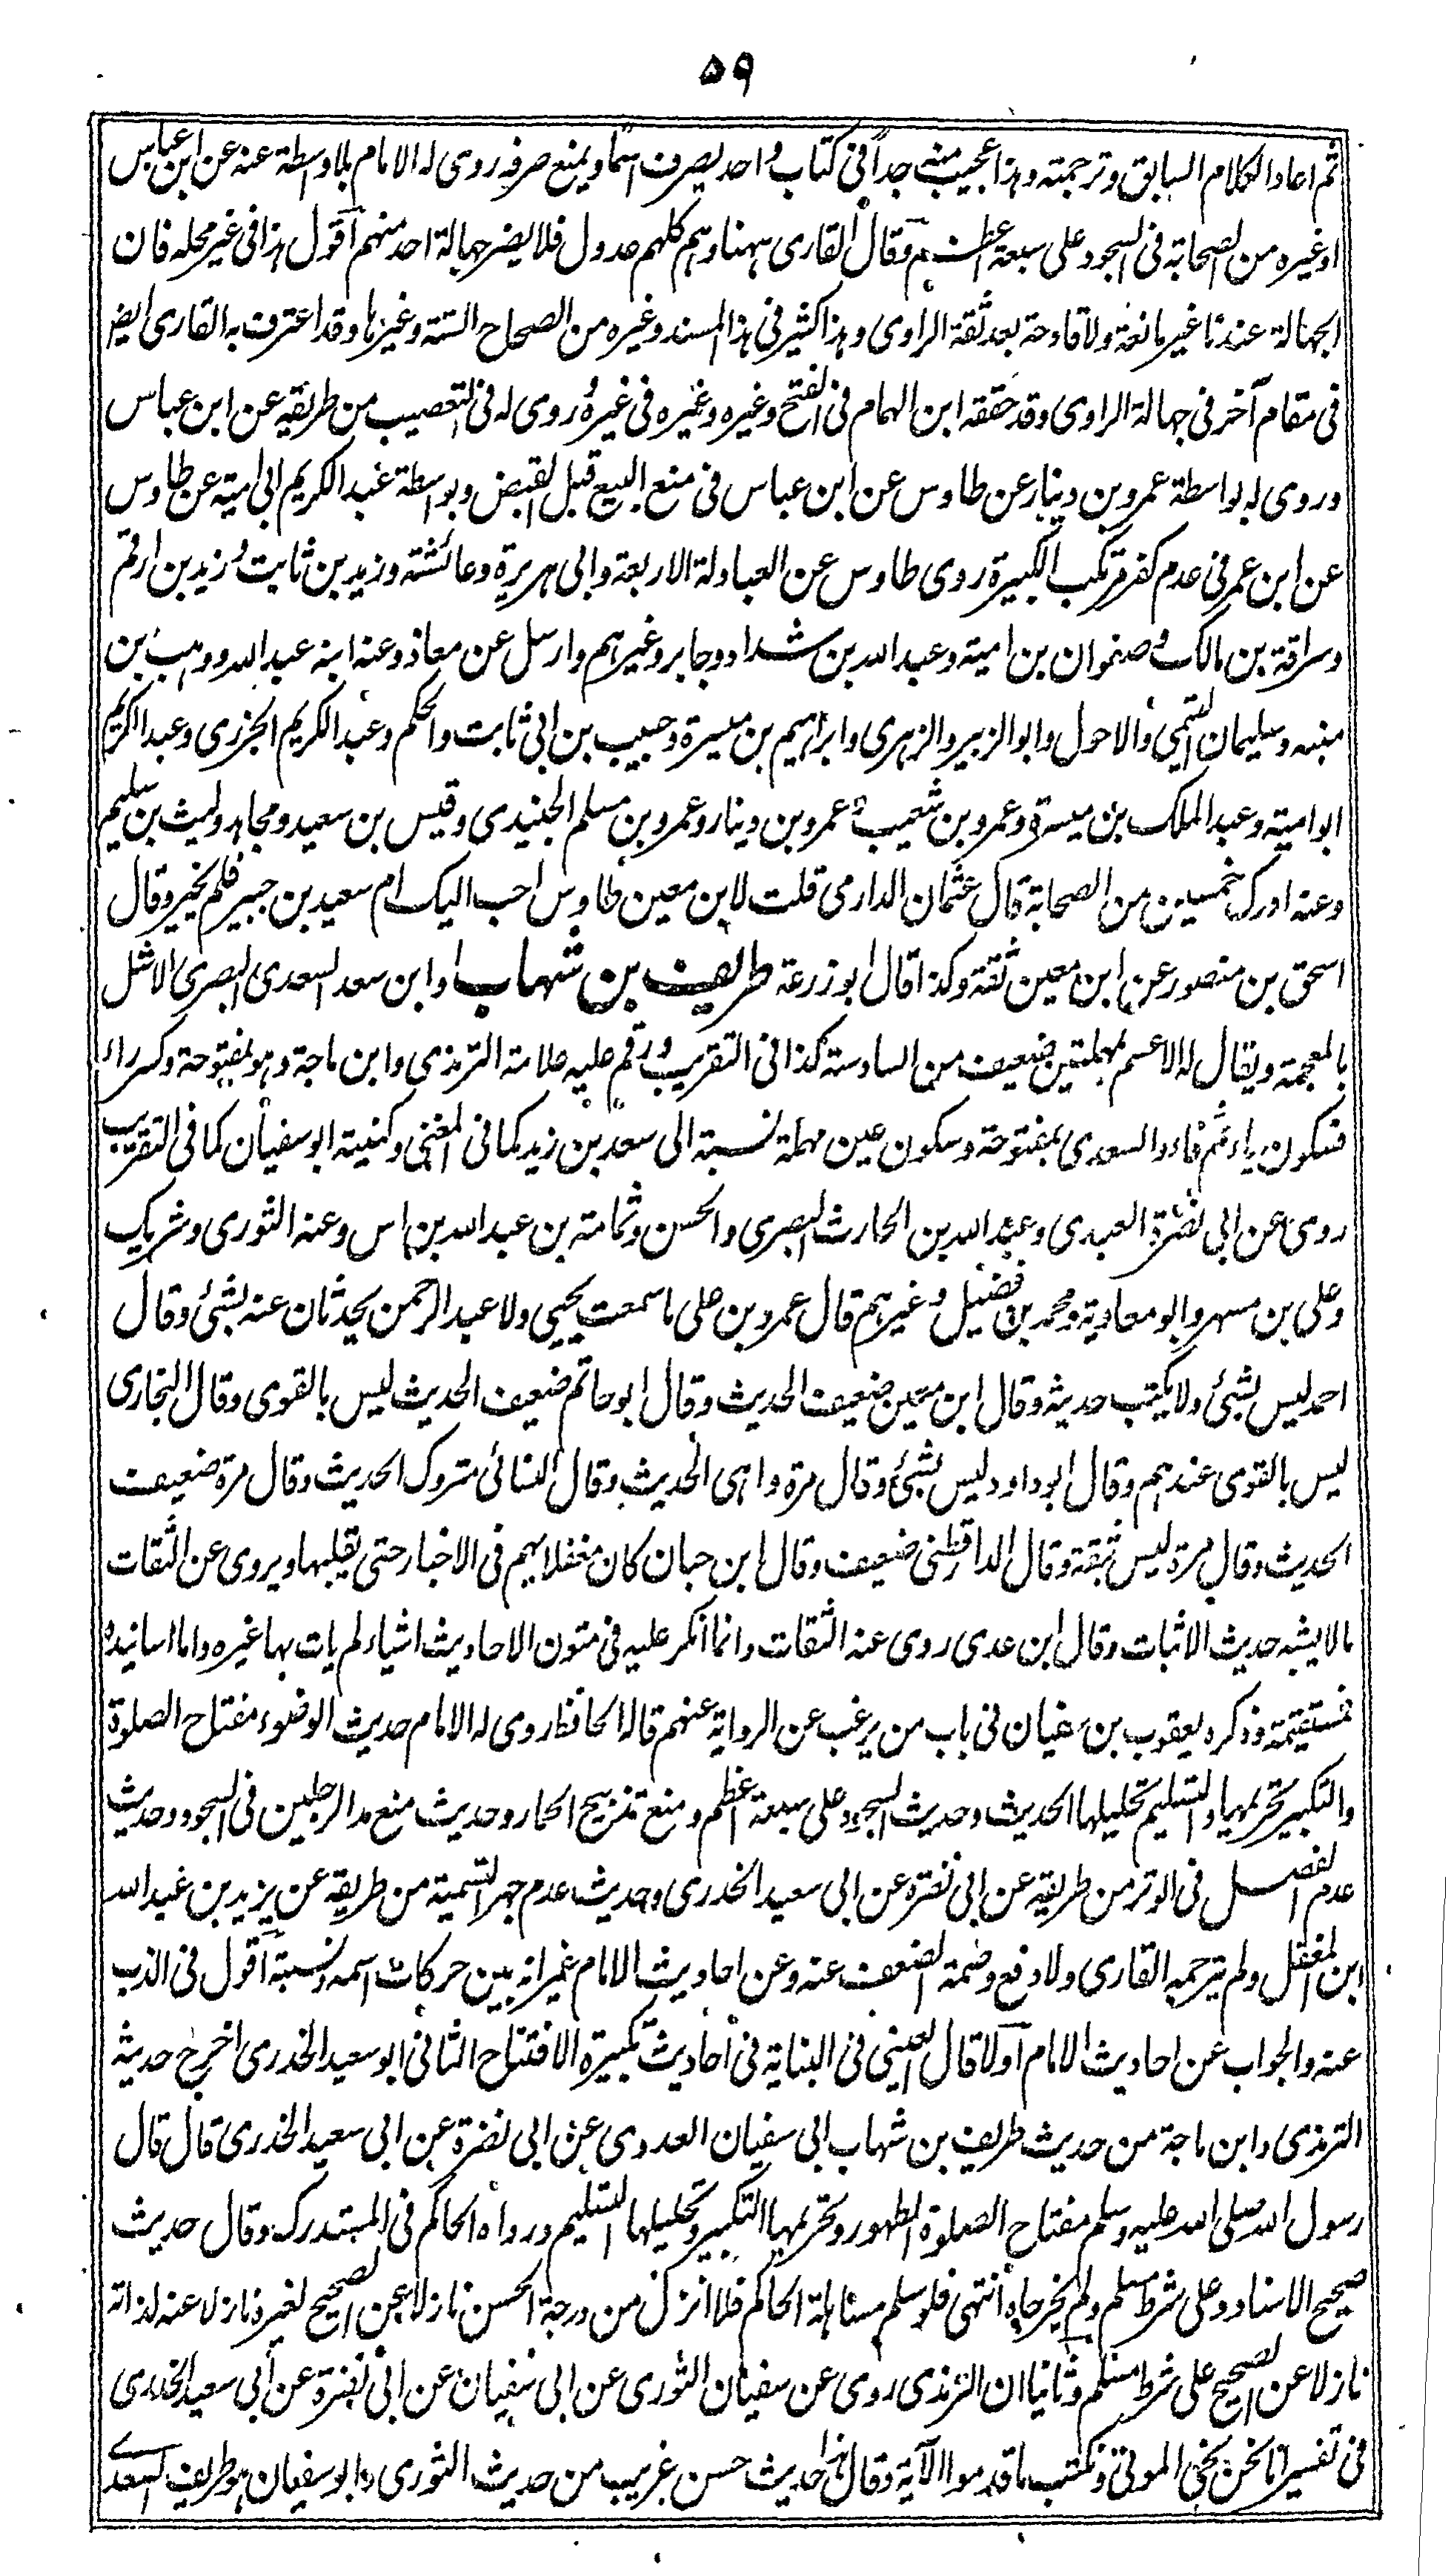 ۵۹
ثم اعاد الکلام السابق وترجمته وہذا عجیب منہ جداً فی کتاب واحد یصرف اسماً ویمنع صرفہ روی لہ الامام بلاواسطة عنہ عن ابن عباس
اوغیرہ من الصحابة فی السجود علی سبعة اعظم وقال القاری ہہنا وہم کلہم عدول فلا یضر جہالة احد منہم اقول ہذا فی غیر محلہ فان
الجہالة عندنا غیر مانعة ولا قادحة بعد ثقة الراوی وہذا کثیر فی ہذا المسند وغیرہ من الصحاح الستة وغیرہا وقد اعترف بہ القاری ایضا
فی مقام آخر فی جہالة الراوی وقد حققہ ابن الہمام فی الفتح وغیرہ وغیرہ فی غیرہ وروی لہ فی التعصیب من طریقہ عن ابن عباس
وروی لہ بواسطة عمرو بن دینار عن طاوس عن ابن عباس فی منع البیع قبل القبض وبواسطة عبد الکریم ابی امیة عن طاوس
عن ابن عمر فی عدم کفر مرتکب الکبیرة روی طاوس عن العبادلة الاربعة وابی ہریرة وعائشة وزید بن ثابت وزید بن ارقم
وسراقة بن مالک وصفوان بن امیة وعبد الله بن شداد وجابر وغیرہم وارسل عن معاذ وعنہ ابنہ عبد الله ووہب بن
منبہ وسلیمان التیمی والاحول وابو الزبیر والزہری وابراہیم بن میسرة وحبیب بن ابی ثابت والحکم وعبد الکریم الجزری وعبد الکریم
ابو امیة وعبد الملک بن میسرة وعمرو بن شعیب وعمرو بن دینار وعمرو بن مسلم الجنیدی وقیس بن سعید ومجاہد ولیث بن سلیم
وعنہ ادرک خمسین من الصحابة قال عثمان الدارمی قلت لابن معین طاوس احب الیک ام سعید بن جبیر فلم یخیر وقال
اسحق بن منصور عن ابن معین ثقة وکذا قال ابو زرعة طریف بن شہاب اوابن سعد السعدی البصری الاشل
بالمعجمة ویقال لہ الاعسم بمہملتین ضعیف من السادسة کذا فی التقریب ورقم علیہ علامة الترمذی وابن ماجة وہو بمفتوحة وکسر راء
فسکون یاء ثم فاء والسعدی بمفتوحة وسکون عین مہملة نسبة الی سعد بن زید کما فی المغنی وکنیتہ ابو سفیان کما فی التقریب
روی عن ابی نضرة العبدی وعبد الله بن الحارث البصری والحسن وثمامة بن عبد الله بن انس وعنہ الثوری وشریک
وعلی بن مسہر وابو معاویة ومحمد بن فضیل وغیرہم قال عمرو بن علی ما سمعت یحیی ولا عبد الرحمن یحدثان عنہ بشئ وقال
احمد لیس بشئ ولا یکتب حدیثہ وقال ابن معین ضعیف الحدیث وقال ابو حاتم ضعیف الحدیث لیس بالقوی وقال البخاری
لیس بالقوی عندہم وقال ابو داود لیس بشئ وقال مرة واہی الحدیث وقال النسائی متروک الحدیث وقال مرة ضعیف
الحدیث وقال مرة لیس بثقة وقال الدارقطنی ضعیف وقال ابن حبان کان مغفلا یہم فی الاخبار حتی یقلبہا ویروی عن الثقات
مالا یشبہ حدیث الاثبات وقال ابن عدی روی عنہ الثقات وانما انکر علیہ فی متون الاحادیث اشیاء لم یات بہا غیرہ واما اسانیدہ
فمستقیمة وذکرہ یعقوب بن سفیان فی باب من یرغب عن الروایة عنہم قالہ الحافظ روی لہ الامام حدیث الوضوء مفتاح الصلوة
والتکبیر تحریمہا والتسلیم تحلیلہا الحدیث وحدیث السجود علی سبعة اعظم ومنع تذبیح الحمار وحدیث منع مد الرجلین فی السجود وحدیث
عدم الفصل فی الوتر من طریقہ عن ابی نضرة عن ابی سعید الخدری وحدیث عدم جہر التسمیة من طریقہ عن یزید بن عبد الله
ابن المغفل ولم یترجمہ القاری ولا دفع وضمة الضعف عنہ وعن احادیث الامام غیر انہ بین حرکات اسمہ ونسبتہ اقول فی الذب
عنہ والجواب عن احادیث الامام اولا قال العینی فی البنایة فی احادیث تکبیرة الافتتاح الثانی ابو سعید الخدری اخرج حدیثہ
الترمذی وابن ماجة من حدیث طریف بن شہاب ابی سفیان العدوی عن ابی نضرة عن ابی سعید الخدری قال قال
رسول الله صلی الله علیہ وسلم مفتاح الصلوة الطہور وتحریمہا التکبیر وتحلیلہا التسلیم ورواہ الحاکم فی المستدرک وقال حدیث
صحیح الاسناد وعلی شرط مسلم ولم یخرجاہ انتہی فلو سلم مساہلة الحاکم فلا انزل من درجة الحسن نازلا عن الصحیح لغیرہ نازلا عنہ لذاتہ
نازلا عن الصحیح علی شرط مسلم وثانیا ان الترمذی روی عن سفیان الثوری عن ابی سفیان عن ابی نضرة عن ابی سعید الخدری
فی تفسیر انا نحن نحی الموتی ونکتب ما قدموا الآیة وقال ہذا حدیث حسن غریب من حدیث الثوری وابو سفیان ہو طریف السعدی